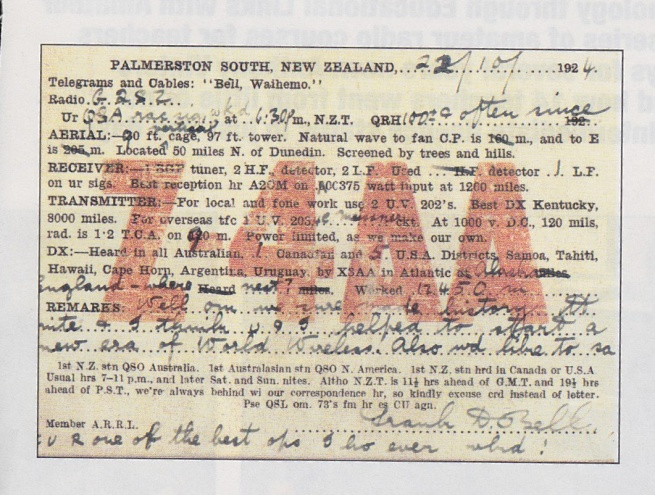 PALMERSTON SOUTH, NEW ZEALAND, 22/10/ 1924
Telegrams and Cables: "Bell, Waihemo."
Radio G2SZ
Ur QSA at 6.30 p m., N.Z.T. QRH 100 & often since 192
AERIAL:— 30 ft. cage, 97 ft. tower. Natural wave to fan C.P. is m., and to E
is m. Located 50 miles N. of Dunedin. Screened by trees and hills.
RECEIVER:— tuner, 2 H.F., detector, 2 L.F. Used H.F. detector 1 L.F.
on ur sigs. Best reception hr A2CM on 375 watt input at 1200 miles.
TRANSMITTER:—For local and fone work use 2 U.V. 202's. Best DX Kentucky,
8000 miles. For overseas tfc 1 U.V. ckt. At 1000 v. D.C., 120 mils,
rad. is 1·2 T.C.A. on m. Power limited, as we make our own.
DX:—Heard in all Australian, 1 Canadian and 5 U.S.A. Districts, Samoa, Tahiti,
Hawaii, Cape Horn, Argentina, Uruguay, by X3AA in Atlantic Alaska miles,
England - where Heard next? miles. Worked 12450 m
REMARKS: Well om we sure history tt
nite & I think u & I helped to start a
new era of World Wireless. Also wd like to sa
1st N.Z. stn QSO Australia. 1st Australasian stn QSO N. America. 1st N.Z. stn hrd in Canada or U.S.A
Usual hrs 7-11 p.m., and later Sat. and Sun. nites. Altho N.Z.T. is 11½ hrs ahead of G.M.T. and 19½ hrs
ahead of P.S.T., we're always behind wi our correspondence hr, so kindly excuse crd instead of letter.
Pse QSL om. 73's fm hr es CU agn.
Member A.R.R.L. Frank D. Bell
U R one of the best ops I hv ever wkd!
Z-4AA